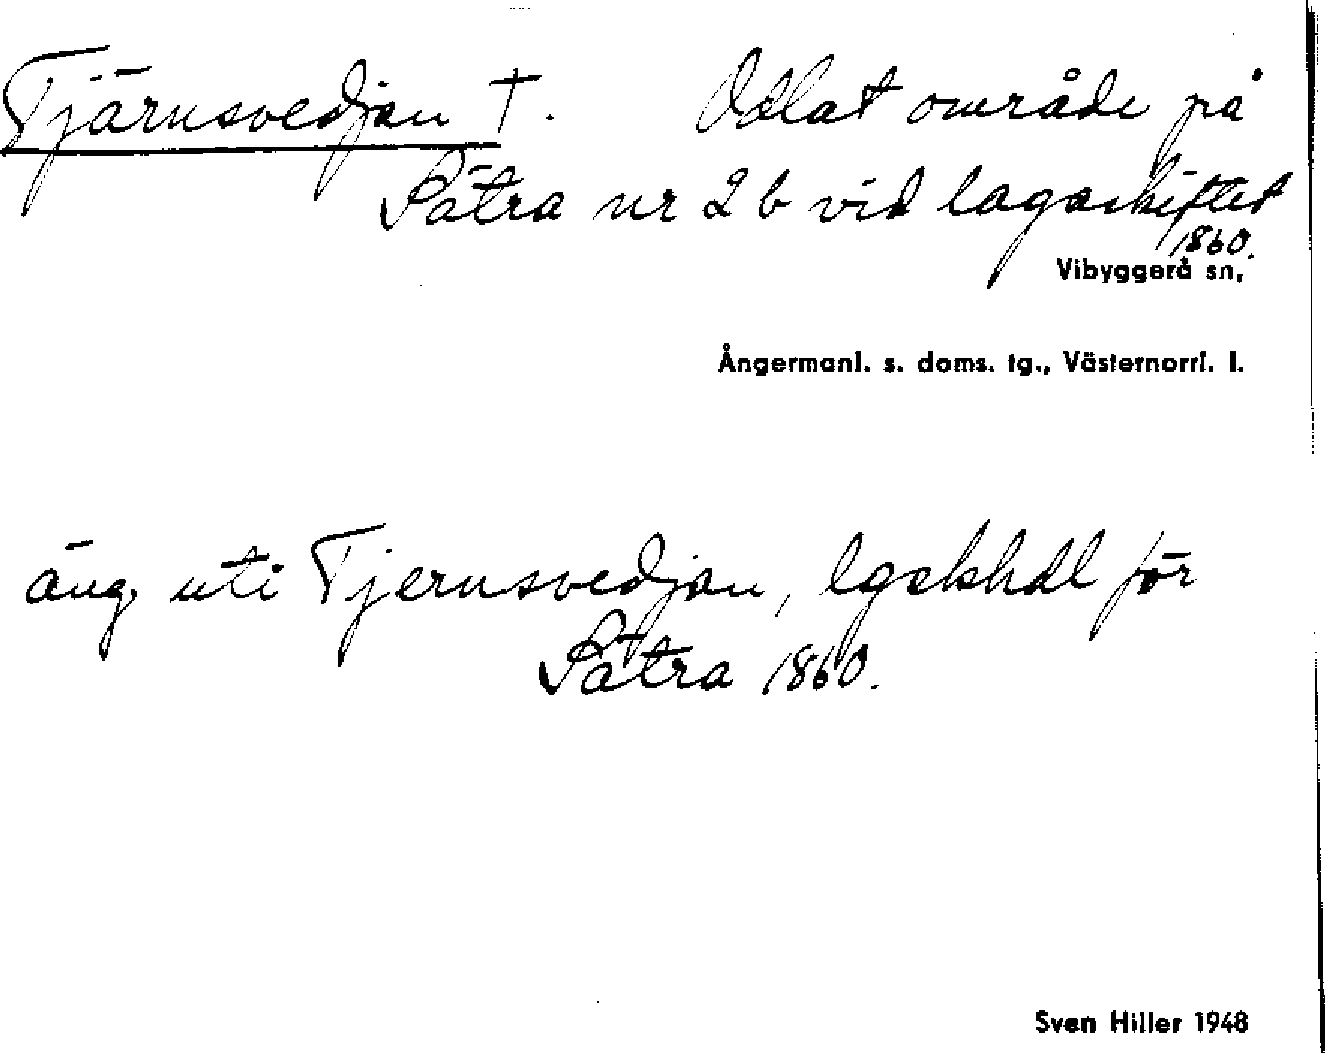 Tjärnsvedjan †. Odlat område på
Sätra nr 2 b vid lagaskiftet
1860.
Vibyggerå sn,
Ångermanl. s. doms. tg., Västernorrl. l.
äng uti Tjernsvedjan, lgskhdl för
Sätra 1860.
Sven Hiller 1948